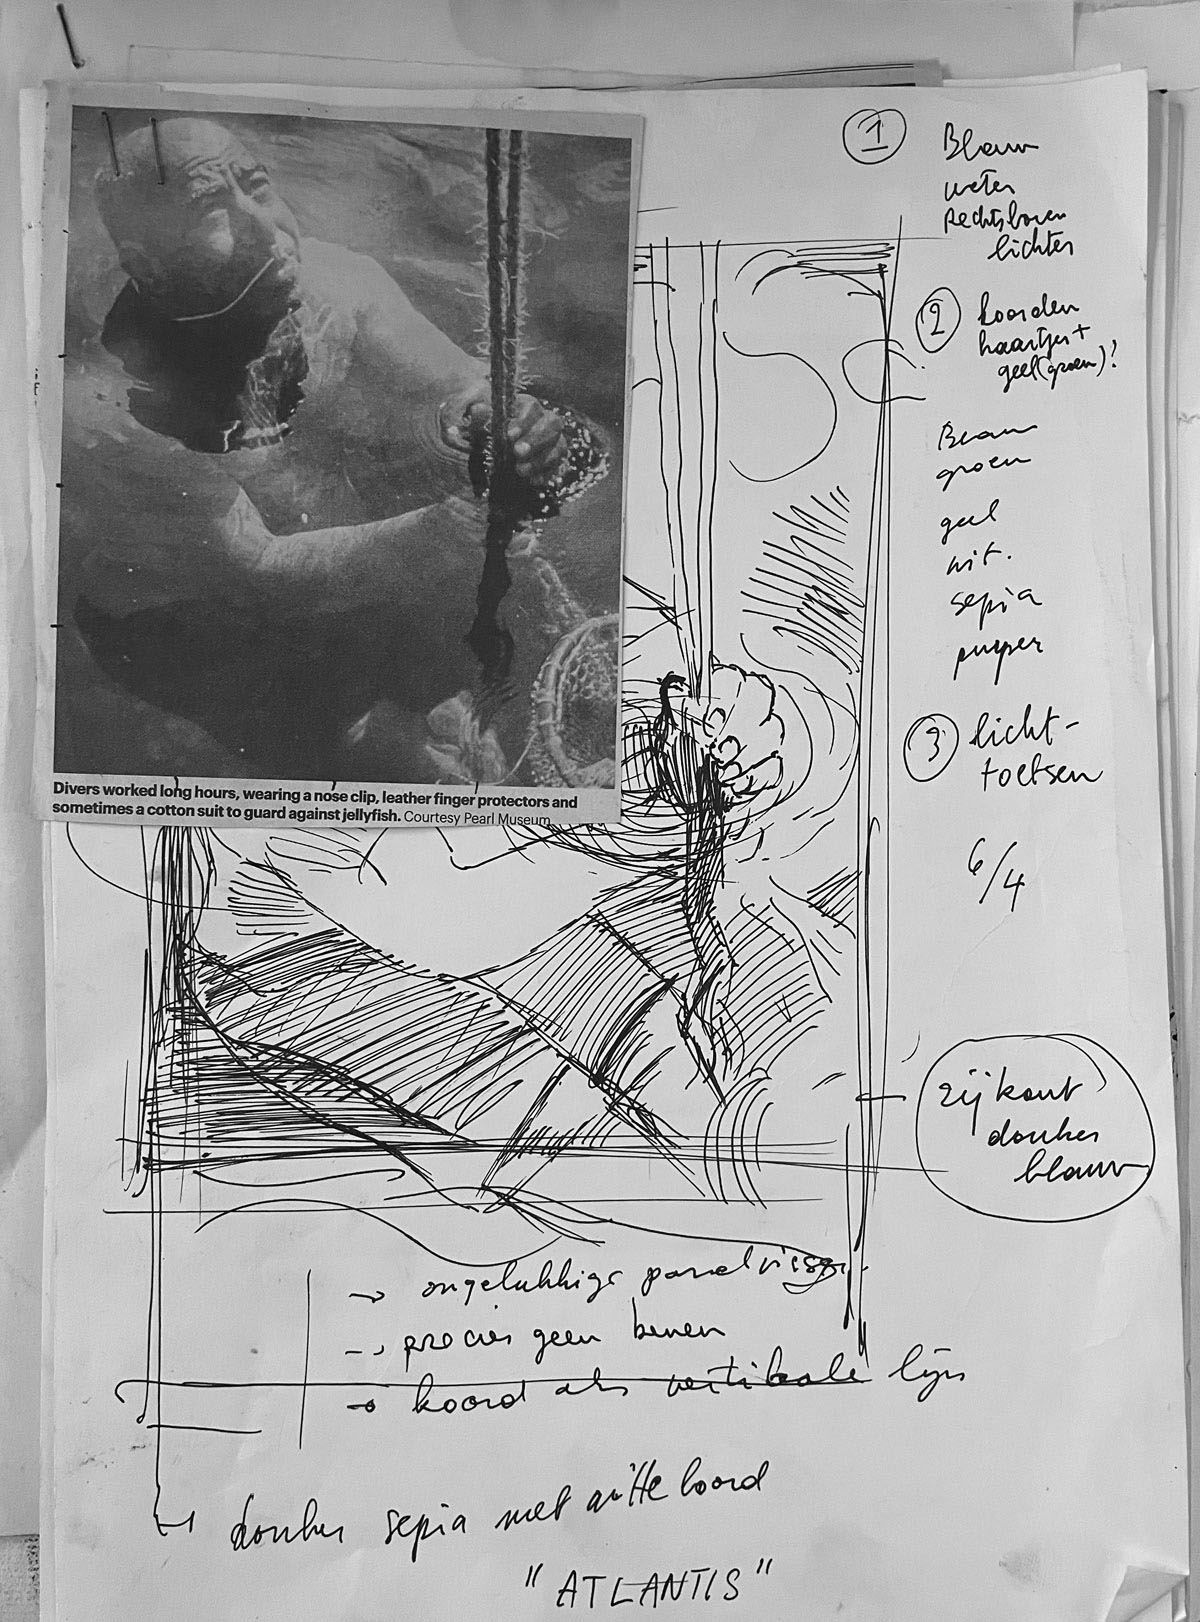 1
Blauw
water
Rechtsboven
lichter
2 koorden
haartjes +
geel (groen)?
Blauw
groen
geel
wit.
sepia
purper
3 licht-
toetsen
6/4
Divers worked long hours, wearing a nose clip, leather finger protectors and
sometimes a cotton suit to guard against jellyfish. Courtesy Pearl Museum
zijkant
donker
blauw
→ ongelukkige parelvisser.
→ precies geen benen
→ koord als vertikale lijn
→ donker sepia met witte boord
"ATLANTIS"